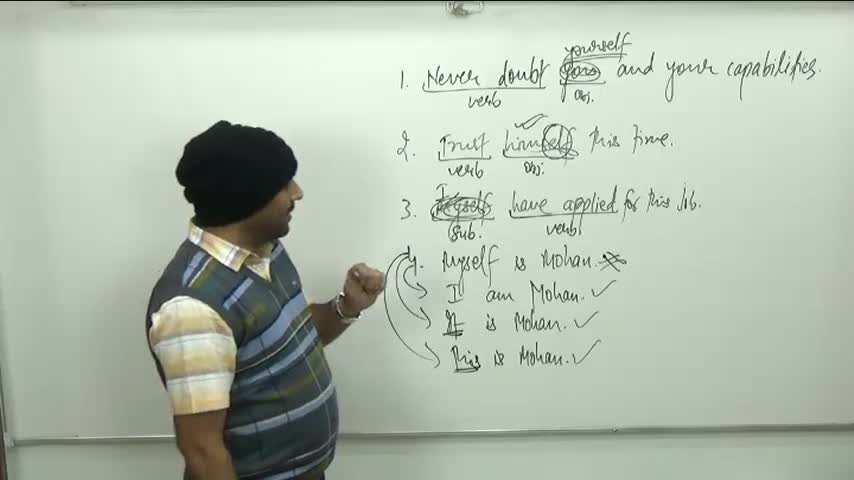 yourself
1. Never doubt yours and your capabilities.
verb obj.
2. Trust himself this time.
verb obj.
I
3. Myself have applied for this job.
Sub. verb
4. Myself is Mohan.
I am Mohan. ✓
It is Mohan. ✓
This is Mohan. ✓